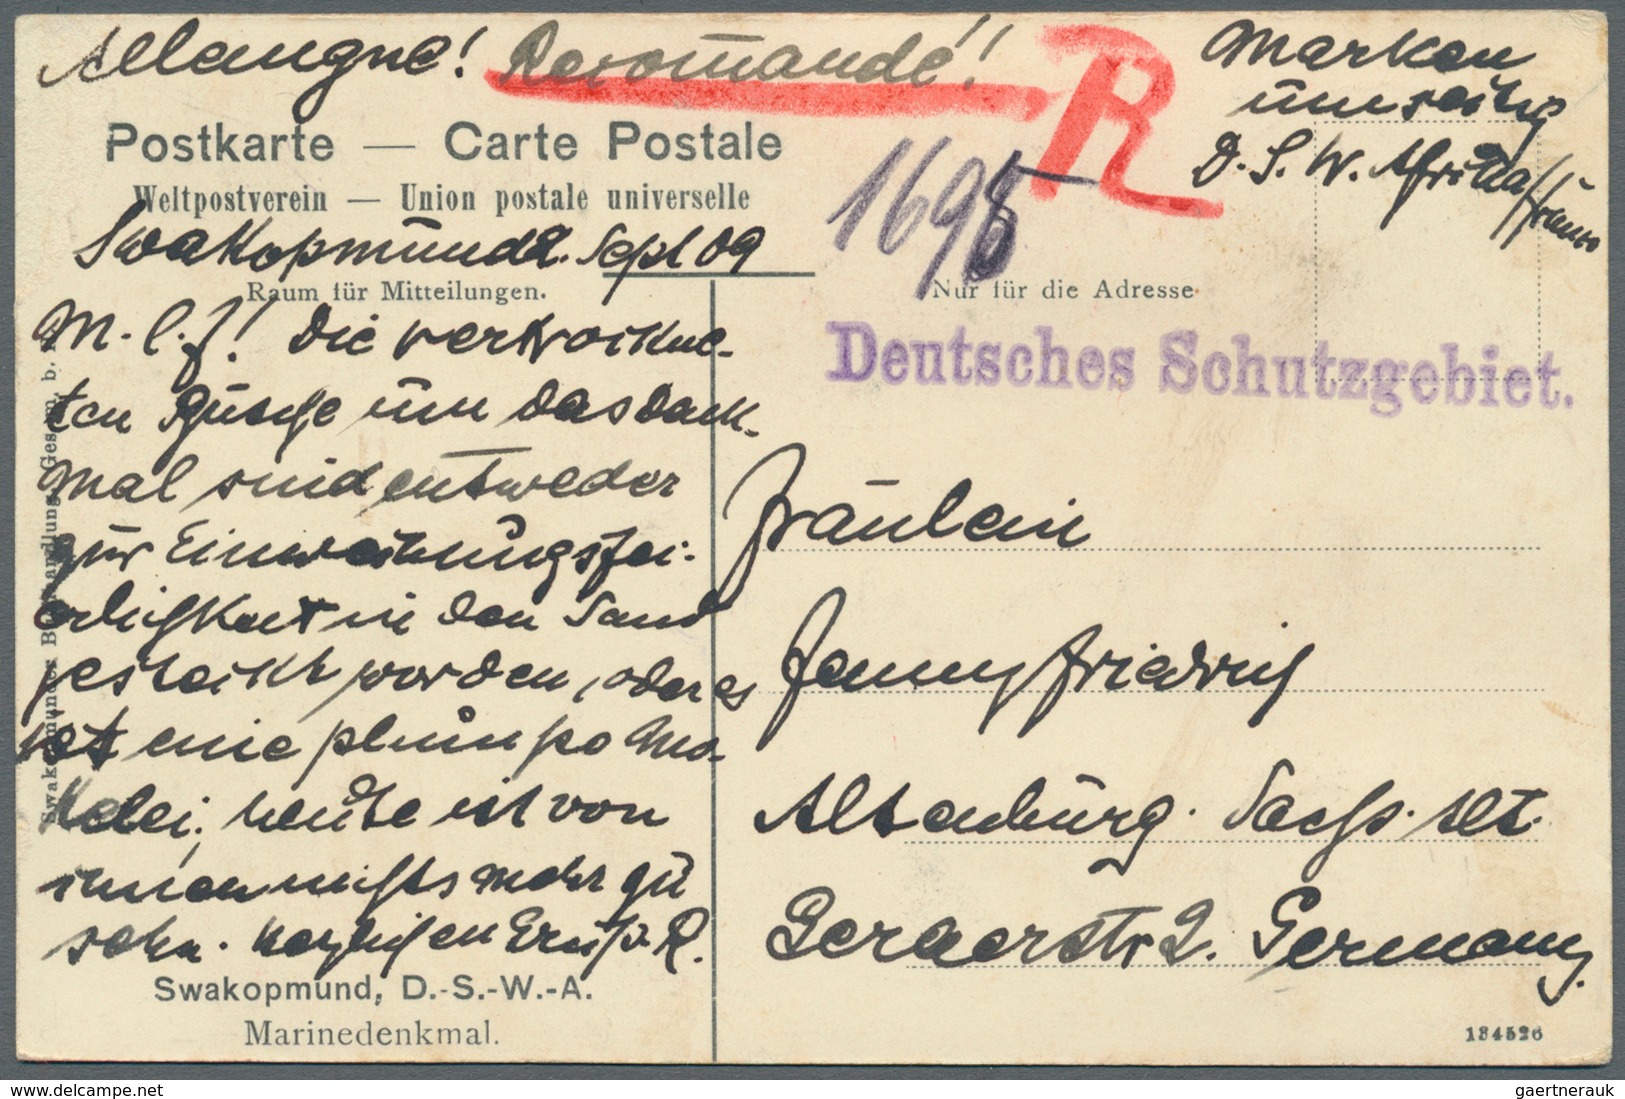 Allemagne! Recommandé!
R
Marken
umseitig
D. S. W. Afrika
1698
Postkarte — Carte Postale
Weltpostverein — Union postale universelle
Swakopmund 2. Sept 09
Raum für Mitteilungen.
Nur für die Adresse
Deutsches Schutzgebiet.
M. l. J! Die vertrockne-
ten Büsche um das Denk-
mal sind entweder
zur Einweihungsfei-
erlichkeit in den Sand
gesteckt worden, oder es
ist eine plumpe Ma-
kelei, heute ist von
ihnen nichts mehr zu
sehn. Herzlichen Gruß R.
Fräulein
Jenny Friedrich
Altenburg. Sachs. Alt.
Geraerstr 2. Germany.
Swakopmund, D.-S.-W.-A.
Marinedenkmal.
134526
www.delcampe.net
gaertnerauk